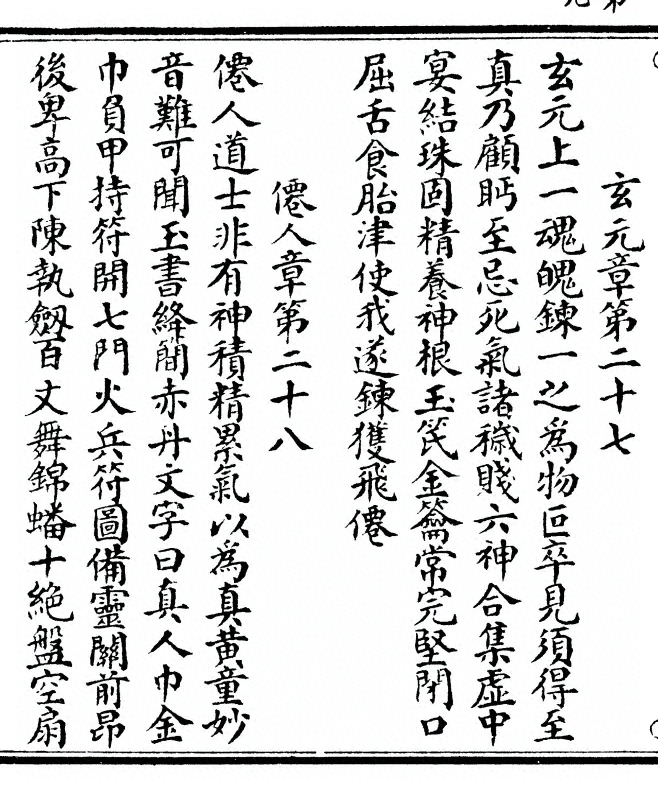 玄元章第二十七
玄元上一魂魄鍊一之為物叵卒見須得至
真乃顧眄至忌死氣諸穢賤六神合集虛中
宴結珠固精養神根玉笢金籥常完堅閉口
屈舌食胎津使我遂鍊獲飛僊
僊人章第二十八
僊人道士非有神積精累氣以為真黃童妙
音難可聞玉書絳簡赤丹文字曰真人巾金
巾負甲持符開七門火兵符圖備靈關前昂
後卑高下陳執劔百丈舞錦蟠十絕盤空扇